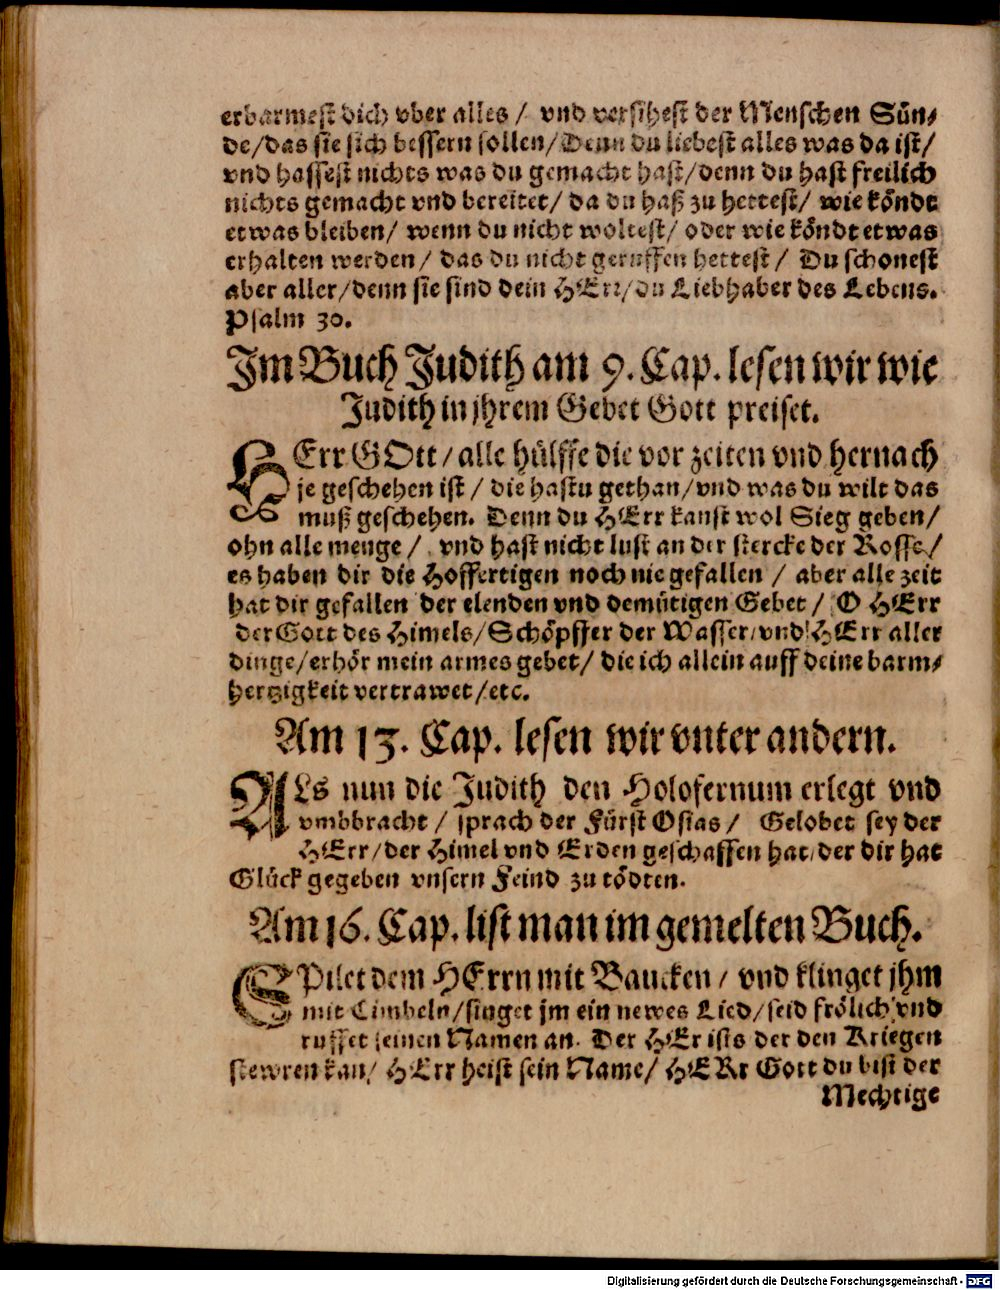 erbarmest dich vber alles / vnd versihest der Menschen Sün-
de/das sie sich bessern sollen/Denn du liebest alles was da ist/
vnd hassest nichts was du gemacht hast/denn du hast freilich
nichts gemacht vnd bereitet/ da du haß zu hettest/ wie köndt
etwas bleiben/ wenn du nicht woltest/ oder wie köndt etwas
erhalten werden/ das du nicht geruffen hettest/ Du schonest
aber aller/denn sie sind dein HErr/du Liebhaber des Lebens.
Psalm 30.
Im Buch Judith am 9. Cap. lesen wir wie
Judith in jhrem Gebet Gott preiset.
HErr GOtt/alle hülffe die vor zeiten vnd hernach
je geschehen ist / die hastu gethan/vnd was du wilt das
muß geschehen. Denn du HErr kanst wol Sieg geben/
ohn alle menge / vnd hast nicht lust an der stercke der Rosse/
es haben dir die Hoffertigen noch nie gefallen / aber alle zeit
hat dir gefallen der elenden vnd demütigen Gebet/ O HErr
der Gott des Himels/Schöpffer der Wasser/vnd HErr aller
dinge/erhör mein armes gebet/ die ich allein auff deine barm-
hertzigkeit vertrawet/etc.
Am 13. Cap. lesen wir vnter andern.
ALs nun die Judith den Holofernum erlegt vnd
vmbbracht / sprach der Fürst Osias/ Gelobet sey der
HErr/der Himel vnd Erden geschaffen hat/der dir hat
Glück gegeben vnsern Feind zu tödten.
Am 16. Cap. list man im gemelten Buch.
SPilet dem HErrn mit Baucken / vnd klinget jhm
mit Cimbeln/singet jm ein newes Lied/seid frölich vnd
ruffet seinen Namen an. Der HErr ists der den Kriegen
stewren kan/ HErr heist sein Name/ HERr Gott du bist der
Mechtige
Digitalisierung gefördert durch die Deutsche Forschungsgemeinschaft - DFG